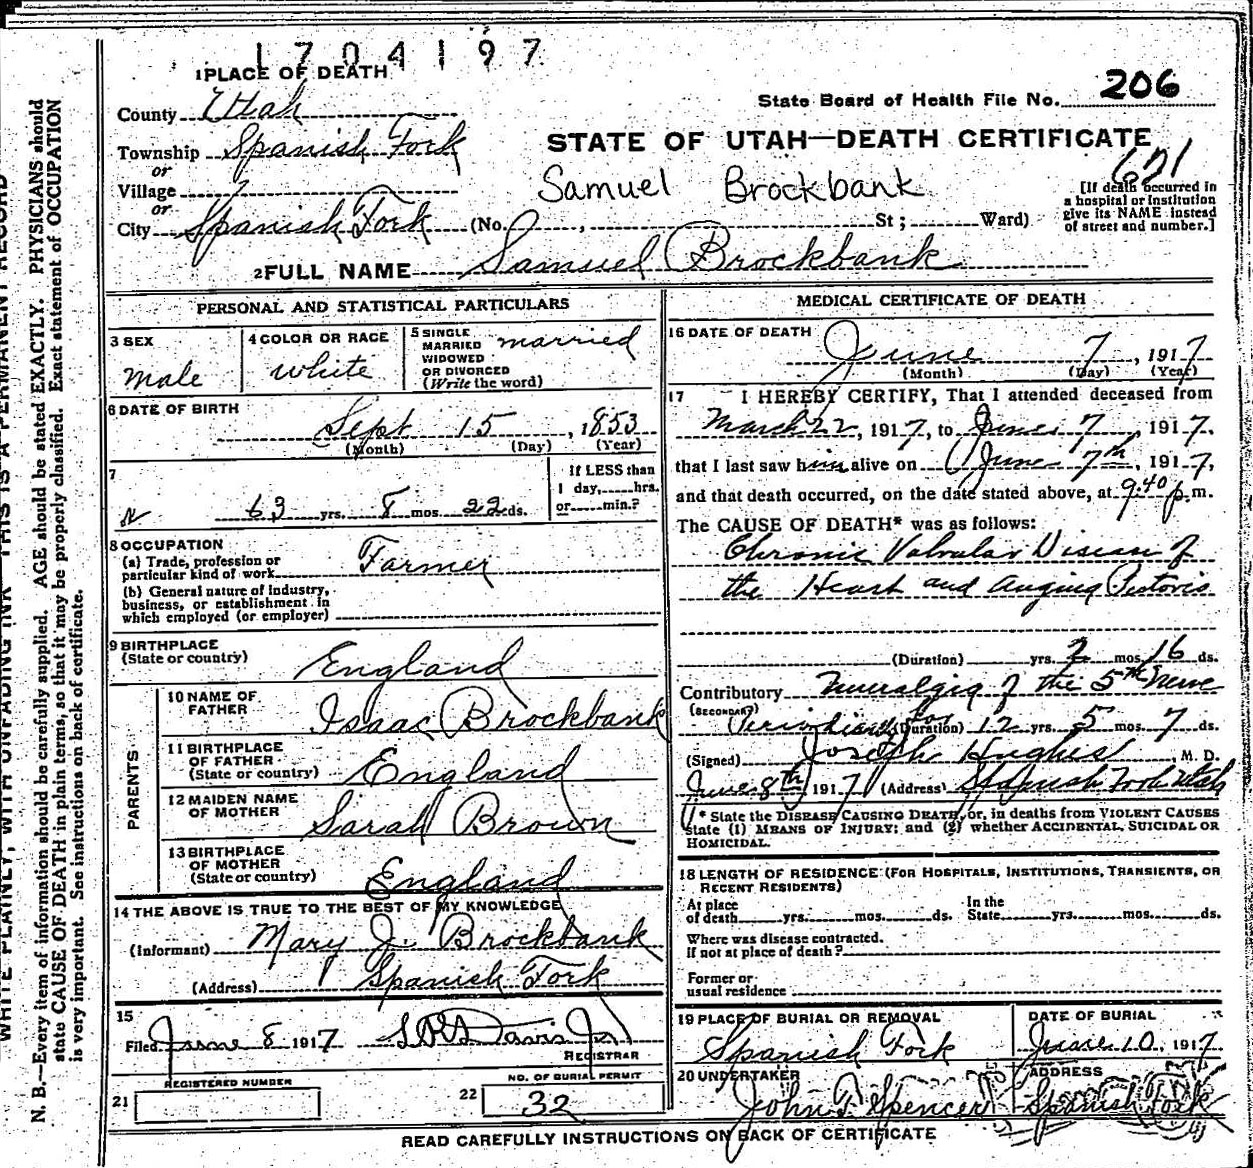 1704197
1 PLACE OF DEATH
County Utah
State Board of Health File No. 206
Township Spanish Fork
STATE OF UTAH—DEATH CERTIFICATE
or
621
Village
Samuel Brockbank
[If death occurred in a hospital or Institution give its NAME instead of street and number.]
or
City Spanish Fork (No. , St; Ward)
2 FULL NAME Samuel Brockbank
PERSONAL AND STATISTICAL PARTICULARS
3 SEX
Male
4 COLOR OR RACE
White
5 SINGLE
MARRIED
WIDOWED
OR DIVORCED
(Write the word)
married
6 DATE OF BIRTH
Sept 15, 1853
(Month) (Day) (Year)
7
63 yrs. 8 mos. 22 ds.
If LESS than
1 day, hrs.
or min.?
8 OCCUPATION
(a) Trade, profession or
particular kind of work Farmer
(b) General nature of industry,
business, or establishment in
which employed (or employer)
9 BIRTHPLACE
(State or country) England
PARENTS
10 NAME OF
FATHER Isaac Brockbank
11 BIRTHPLACE
OF FATHER
(State or country) England
12 MAIDEN NAME
OF MOTHER Sarah Brown
13 BIRTHPLACE
OF MOTHER
(State or country) England
14 THE ABOVE IS TRUE TO THE BEST OF MY KNOWLEDGE
(Informant) Mary J. Brockbank
(Address) Spanish Fork
15
Filed June 8 1917 Davis Jr
REGISTRAR
REGISTERED NUMBER
21
NO. OF BURIAL PERMIT
22 32
MEDICAL CERTIFICATE OF DEATH
16 DATE OF DEATH
June 7, 1917
(Month) (Day) (Year)
17 I HEREBY CERTIFY, That I attended deceased from
March 22, 1917, to June 7, 1917,
that I last saw him alive on June 7th, 1917,
and that death occurred, on the date stated above, at 9.40 p.m.
The CAUSE OF DEATH* was as follows:
Chronic Valvular Disease of
the Heart and Angina Pectoris
(Duration) yrs. 2 mos. 16 ds.
Contributory Neuralgia of the 5th Nerve
(SECONDARY)
for (Duration) 12 yrs. 5 mos. 7 ds.
(Signed) Joseph Hughes M. D.
June 8th 1917 (Address) Spanish Fork Utah
* State the DISEASE CAUSING DEATH, or, in deaths from VIOLENT CAUSES
state (1) MEANS OF INJURY; and (2) whether ACCIDENTAL, SUICIDAL OR
HOMICIDAL.
18 LENGTH OF RESIDENCE (FOR HOSPITALS, INSTITUTIONS, TRANSIENTS, OR
RECENT RESIDENTS)
At place
of death yrs. mos. ds.
In the
State yrs. mos. ds.
Where was disease contracted.
If not at place of death?
Former or
usual residence
19 PLACE OF BURIAL OR REMOVAL
Spanish Fork
DATE OF BURIAL
June 10, 1917
20 UNDERTAKER
John T. Spencer
ADDRESS
Spanish Fork
READ CAREFULLY INSTRUCTIONS ON BACK OF CERTIFICATE
N. B.—Every item of information should be carefully supplied. AGE should be stated EXACTLY. PHYSICIANS should
state CAUSE OF DEATH in plain terms, so that it may be properly classified. Exact statement of OCCUPATION
is very important. See instructions on back of certificate.
WRITE PLAINLY, WITH UNFADING INK—THIS IS A PERMANENT RECORD